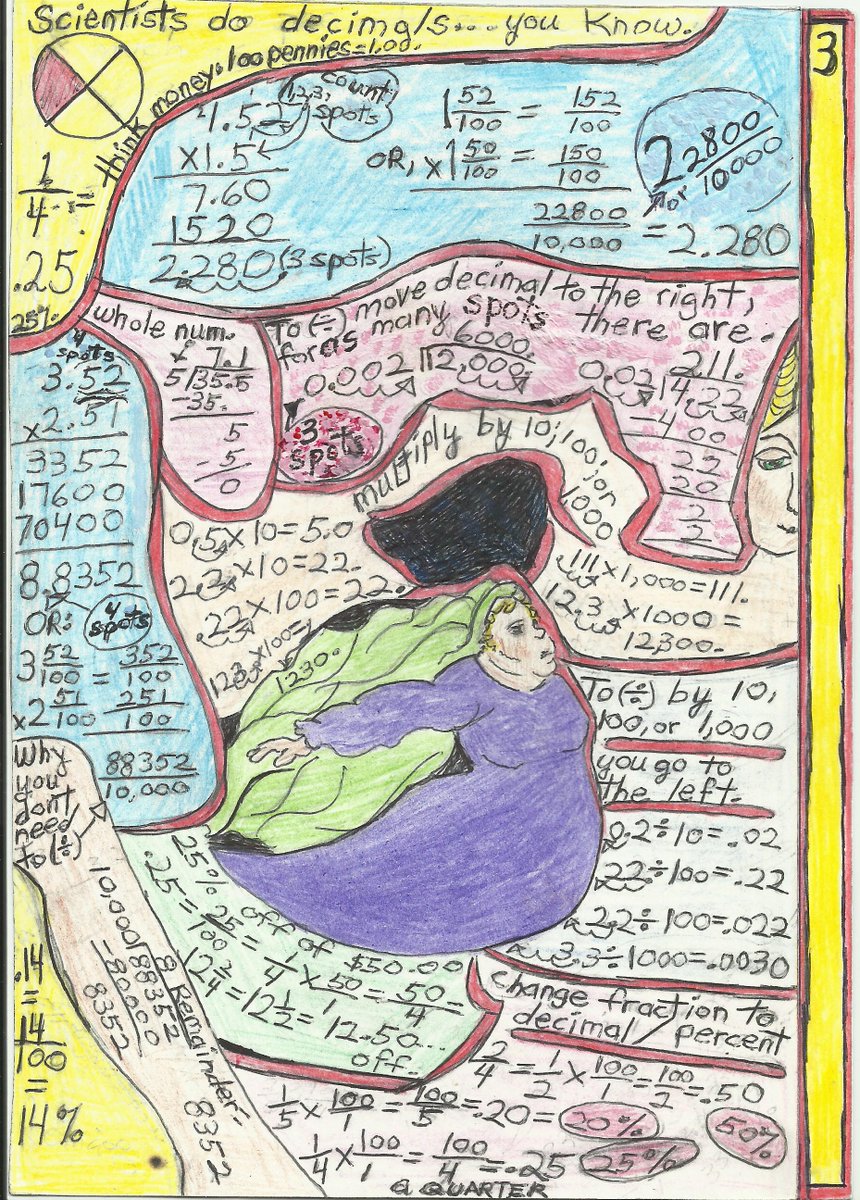 Scientists do decimals... you know.
3
think money: 100 pennies = 1.00.
1/4 =
.25
25%
1.52
1,2,3, count spots
x1.5
7.60
1520
2.280 (3 spots)
1 52/100 = 152/100
OR, x1 50/100 = 150/100
22800/10,000 = 2.280
2 2800/10000
or
whole num.
7.1
5)35.5
-35.
5
-5
0
To (÷) move decimal to the right,
for as many spots there are.
6000.
0.002)12,000.
3
spots
211.
0.02)4.22
-400
22
20
2
2
4
spots
3.52
x2.51
3352
17600
70400
8.8352
OR:
4
spots
3 52/100 = 352/100
x2 51/100 251/100
88352/10,000
multiply by 10; 100; or
1000
0.5x10=5.0
2.2x10=22.
.22x100=22.
12.3x100=
1230.
.111x1,000=111.
12.3x1000=
12,300.
To (÷) by 10,
100, or 1,000
you go to
the left.
0.2÷10=.02
22÷100=.22
2.2÷100=.022
3.3÷1000=.0030
Why
you
don't
need
to (÷)
8 Remainder-
10,000)88352
-80000
8352
8352
25% off of $50.00
.25 = 25/100 = 1/4 x 50/1 = 50/4 =
12 2/4 = 12 1/2 = 12.50...
off.
.14
=
14/100
=
14%
change fraction to
decimal/percent
2/4 = 1/2 x 100/1 = 100/2 = .50
50%
1/5 x 100/1 = 100/5 = .20 = 20%
1/4 x 100/1 = 100/4 = .25 25%
a QUARTER